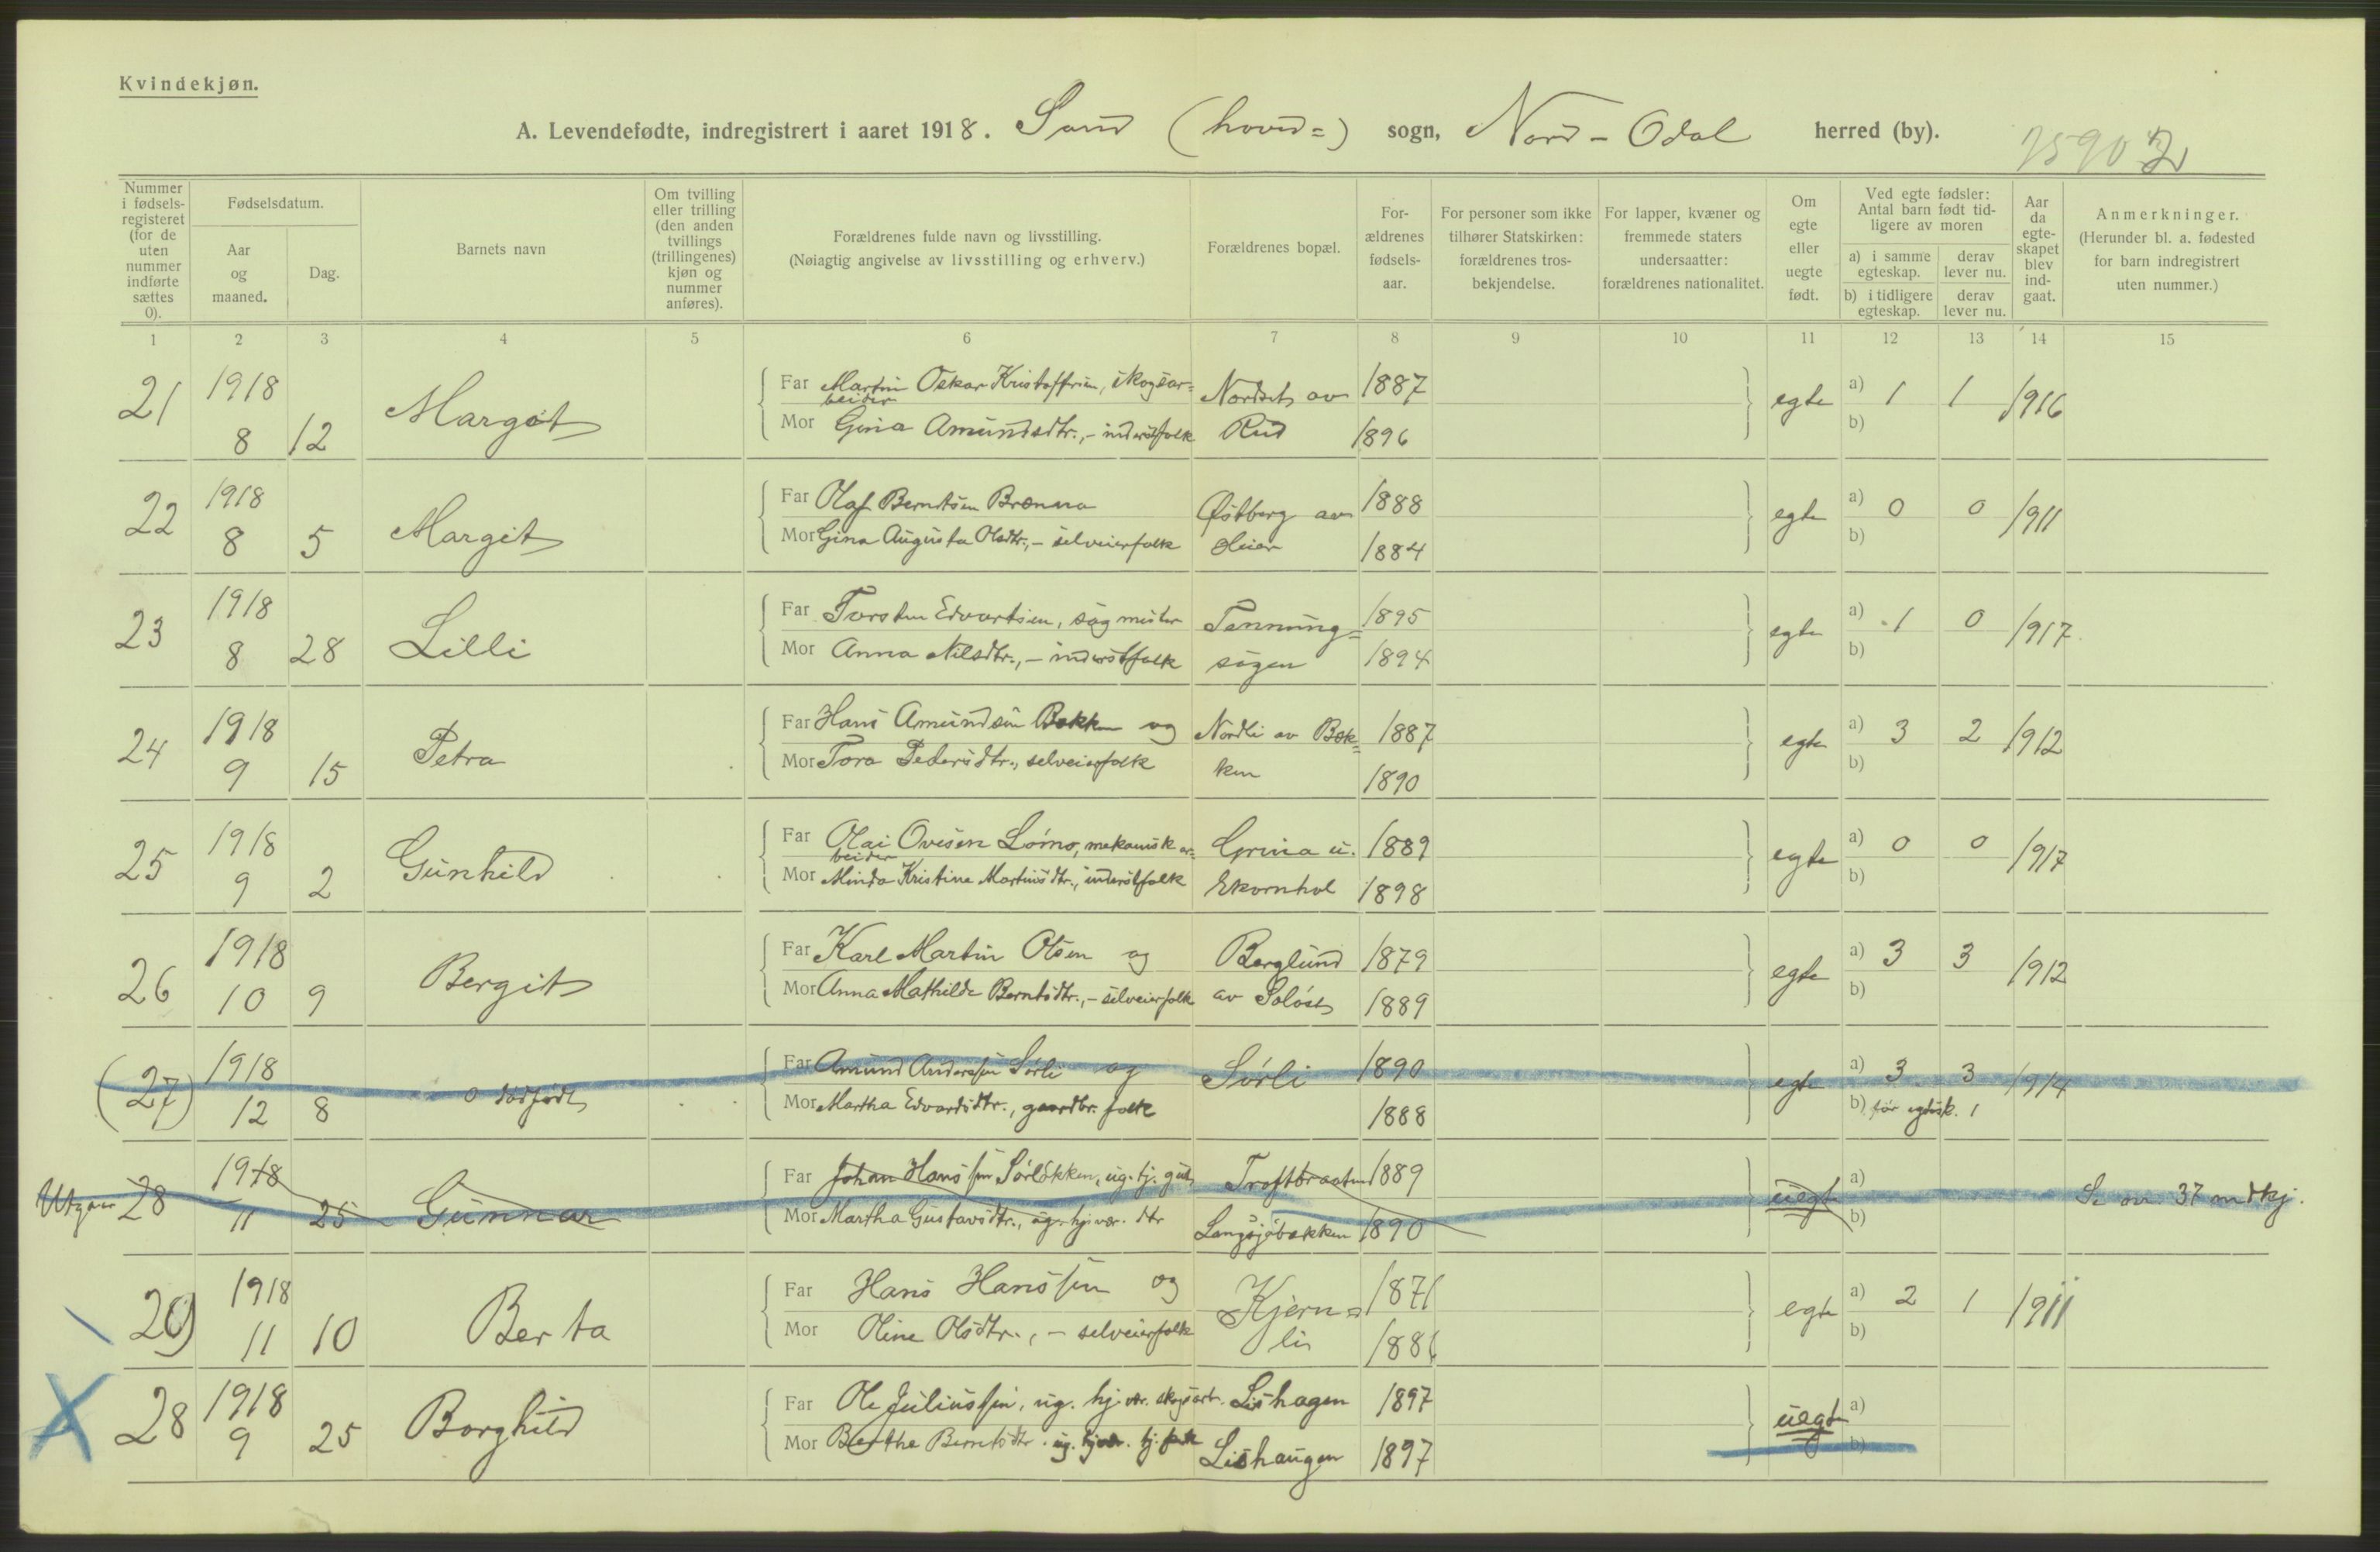 Kvindekjøn.
A. Levendefødte, indregistrert i aaret 1918. Sand (hoved=) sogn, Nord-Odal herred (by).
Nummer i fødsels-registeret (for de uten nummer indførte sættes 0).
Fødselsdatum.
Aar og maaned.
Dag.
Barnets navn
Om tvilling eller trilling (den anden tvillings (trillingenes) kjøn og nummer anføres).
Forældrenes fulde navn og livsstilling.
(Nøiagtig angivelse av livsstilling og erhverv.)
Forældrenes bopæl.
For-ældrenes fødsels-aar.
For personer som ikke tilhører Statskirken: forældrenes tros-bekjendelse.
For lapper, kvæner og fremmede staters undersaatter: forældrenes nationalitet.
Om egte eller uegte født.
Ved egte fødsler: Antal barn født tid-ligere av moren
a) i samme egteskap.
derav lever nu.
b) i tidligere egteskap.
derav lever nu.
Aar da egte-skapet blev ind-gaat.
Anmerkninger.
(Herunder bl. a. fødested for barn indregistrert uten nummer.)
1 2 3 4 5 6 7 8 9 10 11 12 13 14 15
21 1918 8 12 Margot
Far Martin Oskar Kristoffersen, skogsar=beider Nordset av 1887
Mor Gina Amundsdtr., - inderstfolk Rud 1896
egte a) 1 1 1916
b)
22 1918 8 5 Margit
Far Olaf Berntsen Brenna Østberg av 1888
Mor Gina Augusta Olsdtr., - selveierfolk 1884
egte a) 0 0 1911
b)
23 1918 8 28 Lilli
Far Torsten Edvartsen, sagmester Tennung= 1895
Mor Anna Nilsdtr., - inderstfolk sagen 1894
egte a) 1 0 1917
b)
24 1918 9 15 Petra
Far Hans Amundsen Bekken og Nordli av Bek= 1887
Mor Tora Pedersdtr., selveierfolk ken 1890
egte a) 3 2 1912
b)
25 1918 9 2 Gunhild
Far Olai Ovesen Lømo, mekanisk ar=beider Grina u. 1889
Mor Minda Kristine Martinsdtr., inderstfolk Ekornhol 1898
egte a) 0 0 1917
b)
26 1918 10 9 Bergit
Far Karl Martin Olsen og Berglund 1879
Mor Anna Mathilde Berntsdtr., - selveierfolk av Soløst 1889
egte a) 3 3 1912
b)
(27) 1918 12 8 0 dødfødt
Far Amund Anderssen Sørli og Sørli 1890
Mor Martha Edvardsdtr., gaardbr. folk 1888
egte a) 3 3 1914
b) før egtesk. 1
Utgaar 28 1918 11 25 Gunnar
Far Johan Hanssen Sørløkken, ug. hj. gut Troftbraaten 1889
Mor Martha Gustavsdtr., ug. hjvær. dtr Langsjøbekken 1890
uegte a)
b)
Se nr. 37 mdkj.
29 1918 11 10 Berta
Far Hans Hanssen og Kjern= 1871
Mor Oline Olsdtr., - selveierfolk li 1881
egte a) 2 1 1911
b)
28 1918 9 25 Borghild
Far Ole Juliussen, ug. hj.vær. skogsarb. Lishagen 1897
Mor Berthe Berntsdtr. ug. hjvær. Lishaugen 1897
uegte a)
b)